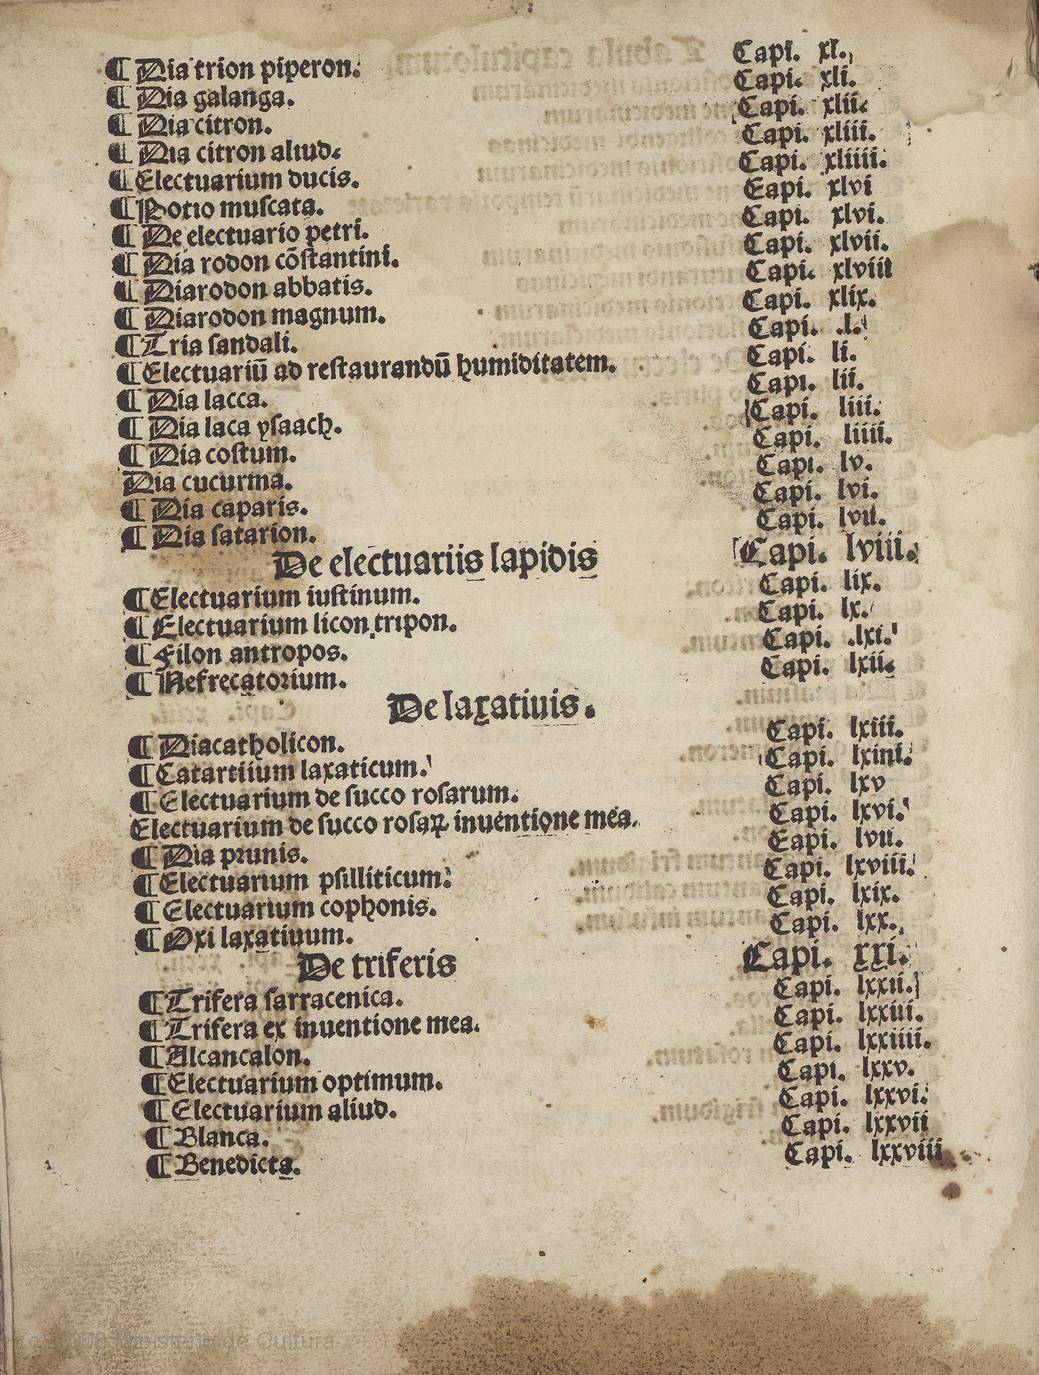 ¶ Dia trion piperon. Capi. xl.
¶ Dia galanga. Capi. xli.
¶ Dia citron. Capi. xlii.
¶ Dia citron aliud. Capi. xliii.
¶ Electuarium ducis. Capi. xliiii.
¶ Potio muscata. Eapi. xlvi
¶ De electuario petri. Capi. xlvi.
¶ Dia rodon cōstantini. Capi. xlvii.
¶ Diarodon abbatis. Capi. xlviii
¶ Diarodon magnum. Capi. xlix.
¶ Tria sandali. Capi. .l.
¶ Electuariū ad restaurandū humiditatem. Capi. li.
¶ Dia lacca. Capi. lii.
¶ Dia laca ysaach. Capi. liii.
¶ Dia costum. Capi. liiii.
Dia cucurma. Capi. lv.
¶ Dia caparis. Capi. lvi.
¶ Dia satarion. Capi. lvii.
De electuariis lapidis Capi. lviii.
¶ Electuarium iustinum. Capi. lix.
¶ Electuarium licon tripon. Capi. lx.
¶ Filon antropos. Capi. .lxi.
¶ Nefrecatorium. Capi. lxii.
De laxatiuis.
¶ Diacatholicon. Capi. lxiii.
¶ Catartiium laxaticum. Capi. lxini.
¶ Electuarium de succo rosarum. Capi. lxv
Electuarium de succo rosaꝝ inuentione mea. Capi. lxvi.
¶ Dia prunis. Eapi. lvii.
¶ Electuarium psilliticum. Capi. lxviii.
¶ Electuarium cophonis. Capi. lxix.
¶ Oxi laxatiuum. Capi. lxx.
De triferis Capi. xxi.
¶ Trifera sarracenica. Capi. lxxii.
¶ Trifera ex inuentione mea. Capi. lxxiii.
¶ Alcancalon. Capi. lxxiiii.
¶ Electuarium optimum. Capi. lxxv.
¶ Electuarium aliud. Capi. lxxvi.
¶ Blanca. Capi. lxxvii
¶ Benedicta. Capi. lxxviii